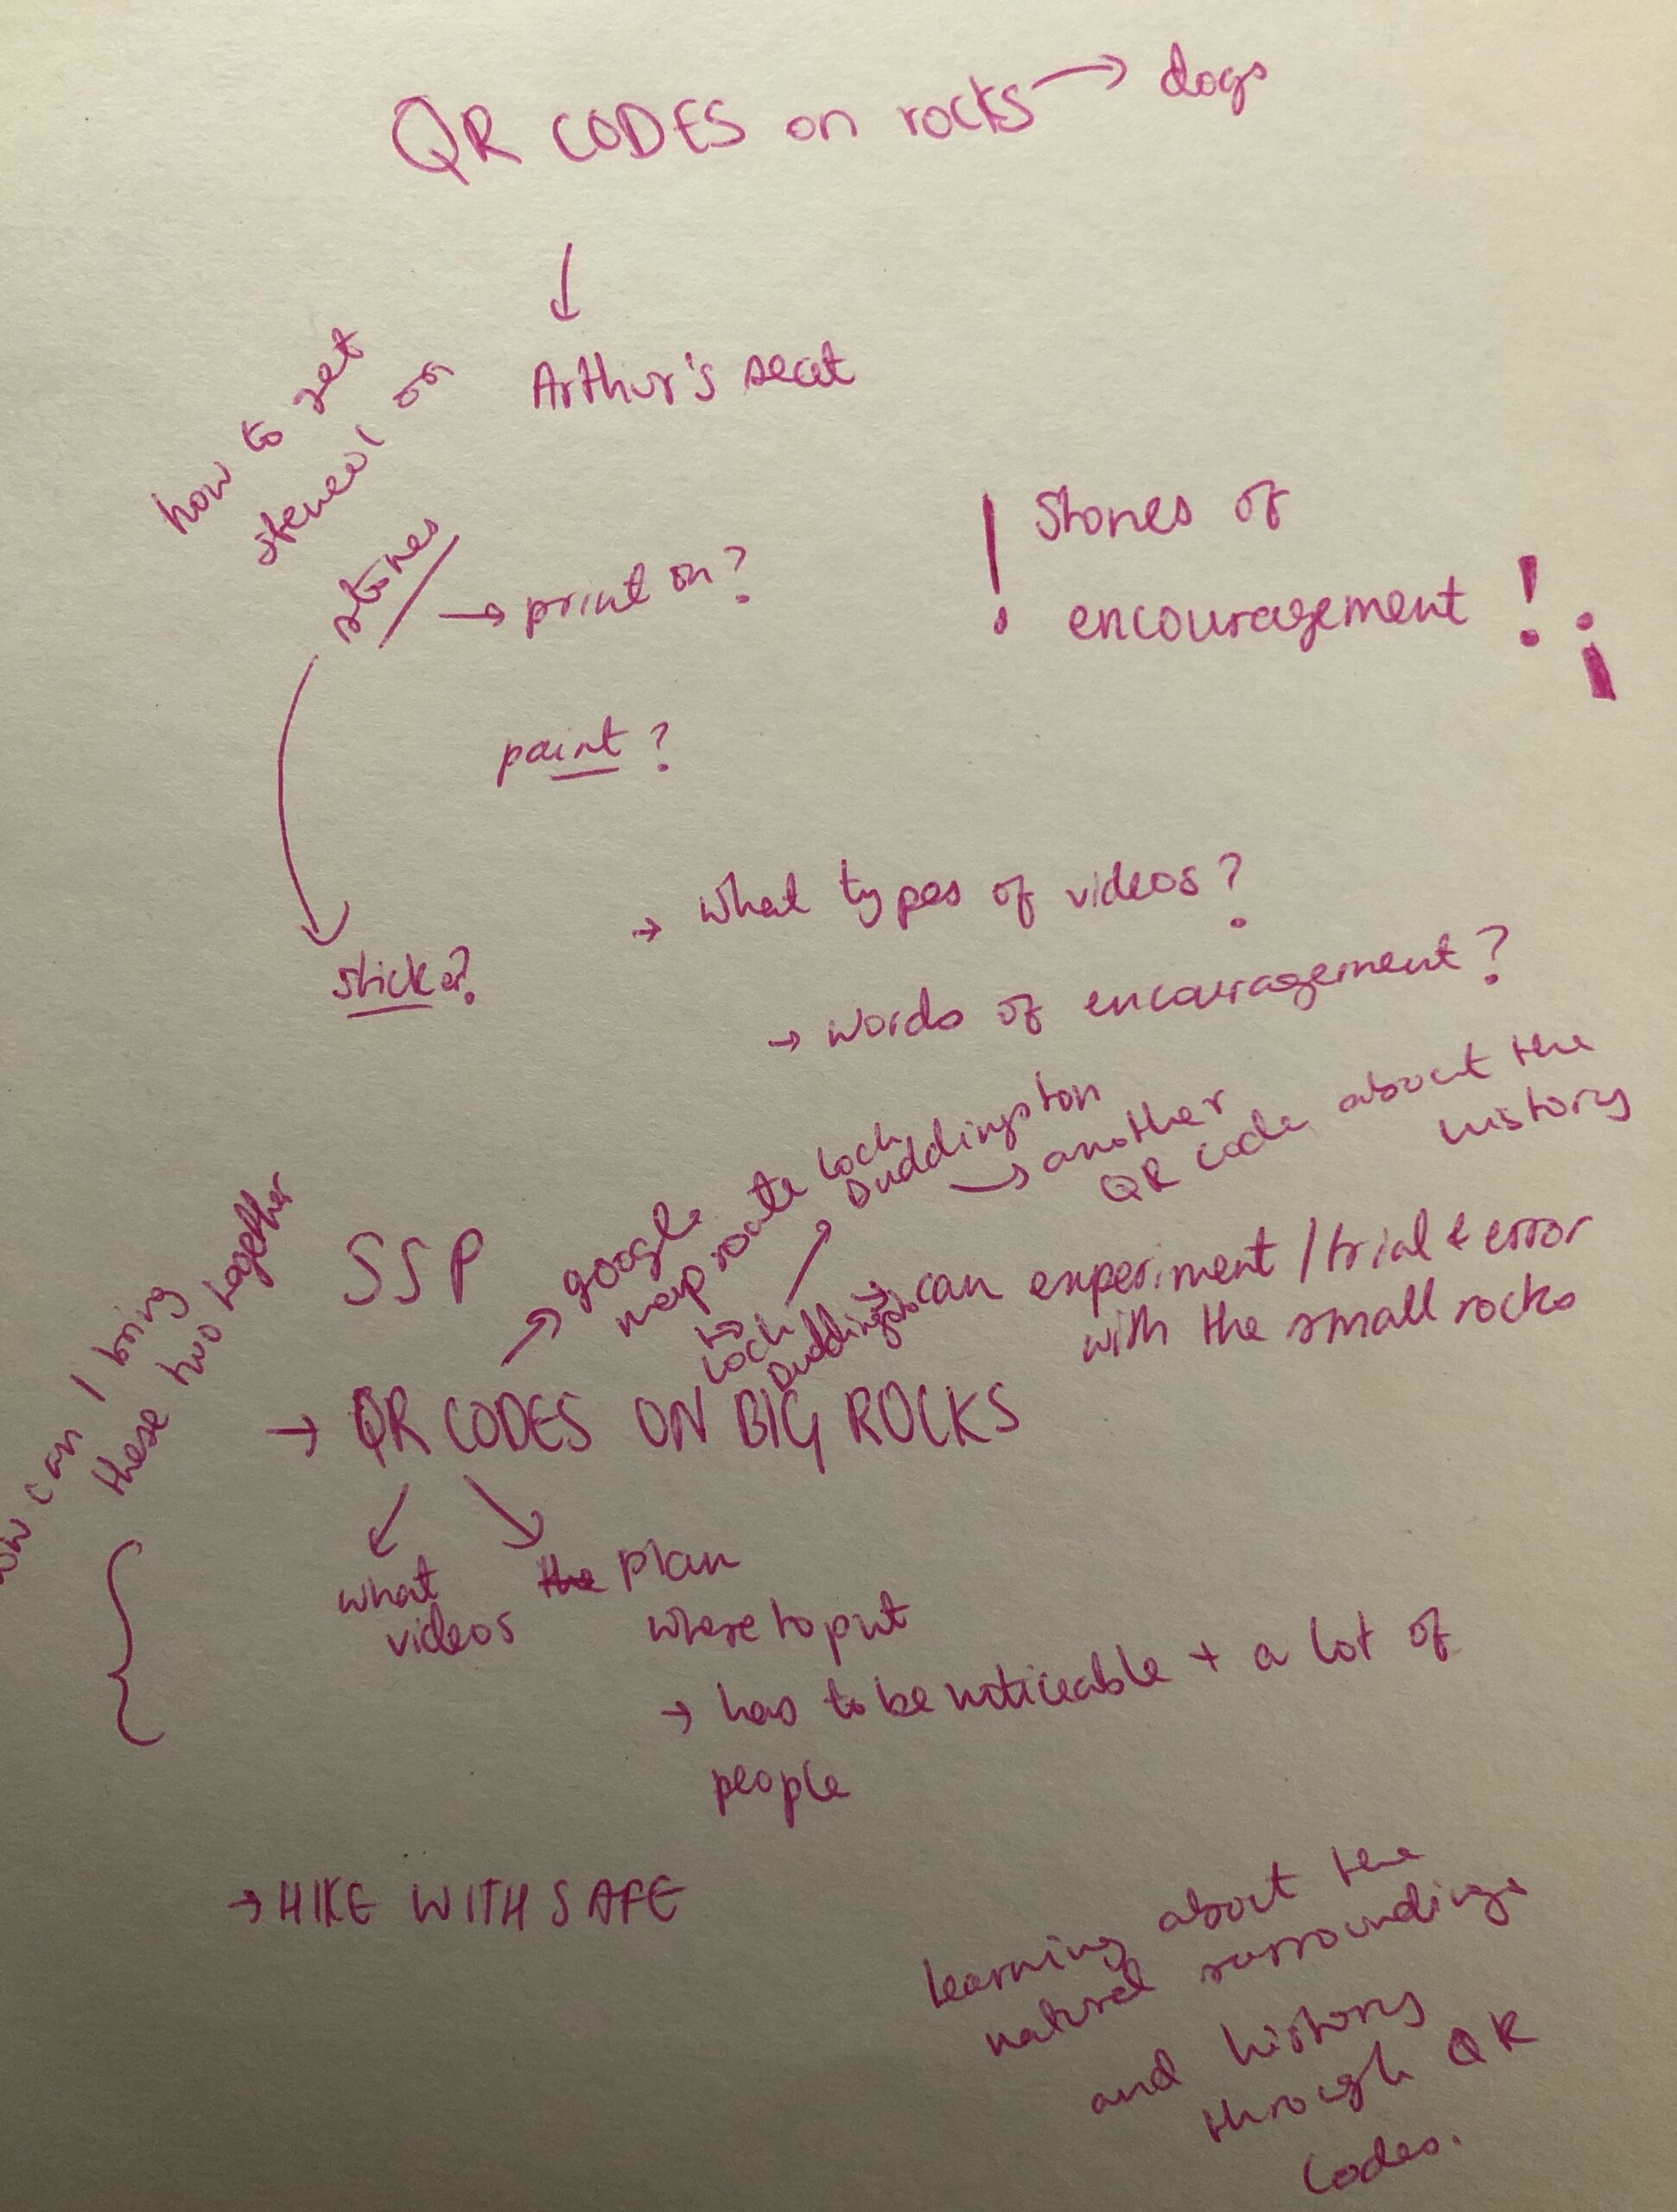 QR CODES on rocks → dogs
↓
Arthur's seat
how to get
stencil on
stones
→ print on?
paint?
sticker?
! Stones of
encouragement ! ¡
→ what types of videos?
→ words of encouragement?
SSP
→ google
map route Loch
Duddingston
→ another
QR code about the
history
to
Loch
→ can experiment / trial & error
with the small rocks
→ QR CODES ON BIG ROCKS
how can I bring
these two together
what
videos
the plan
where to put
→ has to be noticeable + a lot of
people
→ HIKE WITH SAFE
Learning about the
natural surroundings
and history
through QR
Codes.